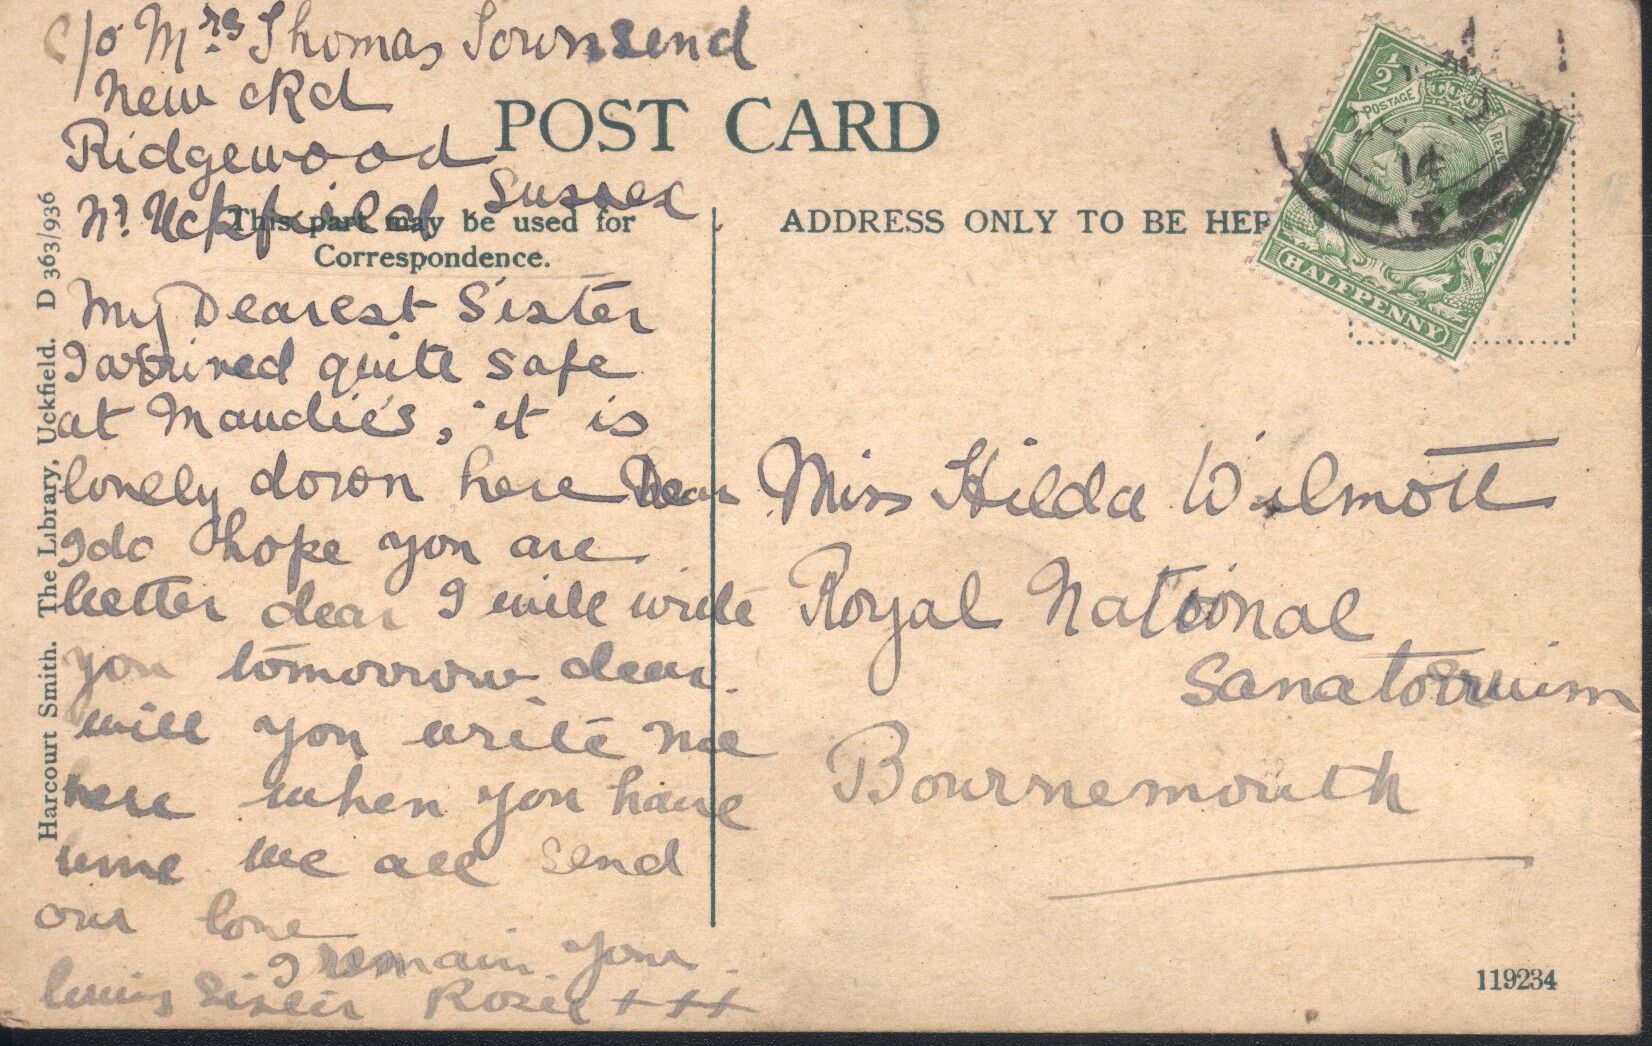 c/o Mrs Thomas Townsend
New Rd
Ridgewood
Nr Uckfield Sussex
POST CARD
This part may be used for
Correspondence.
ADDRESS ONLY TO BE HER
My Dearest Sister
I arrived quite safe
at Maudie's, it is
lonely down here Dear
I do hope you are
better dear I will write
you tomorrow dear.
will you write me
here when you have
time we all send
our love
I remain your
loving Sister Rosie + + +
Miss Hilda Wilmott
Royal National
Sanatorium
Bournemouth
Harcourt Smith. The Library, Uckfield. D 363/936
119234
1/2
POSTAGE
REVE
HALFPENNY
14